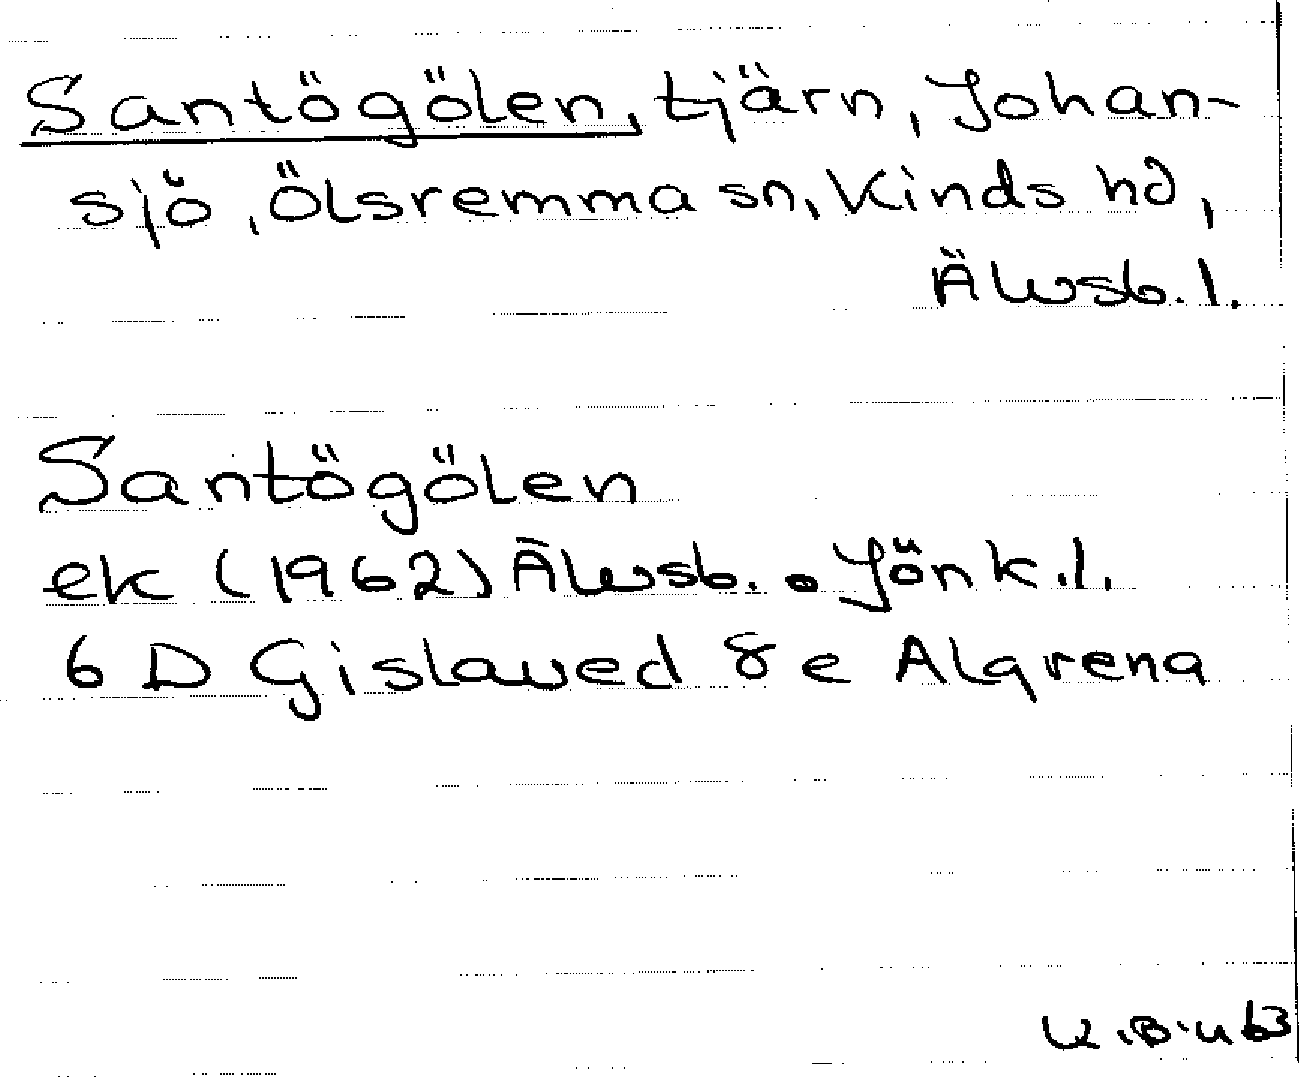 Santögölen, tjärn, Johan-
sjö, Ölsremma sn, Kinds hd,
Älvsb. l.
Santögölen
ek (1962) Älvsb. o Jönk. l.
6 D Gislaved 8 e Algrena
63